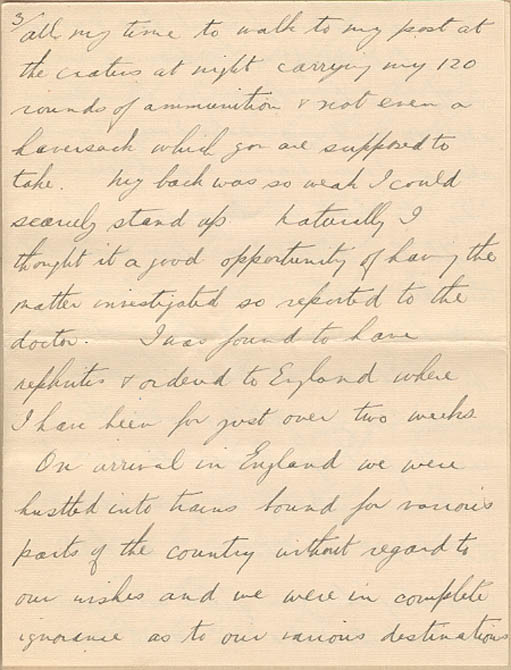 3/ all my time to walk to my post at
the craters at night carrying my 120
rounds of ammunition & not even a
haversack which you are supposed to
take. My back was so weak I could
scarcely stand up. Naturally I
thought it a good opportunity of having the
matter investigated so reported to the
doctor. I was found to have
nephritis & ordered to England where
I have been for just over two weeks
On arrival in England we were
hustled into trains bound for various
parts of the country without regard to
our wishes and we were in complete
ignorance as to our various destinations